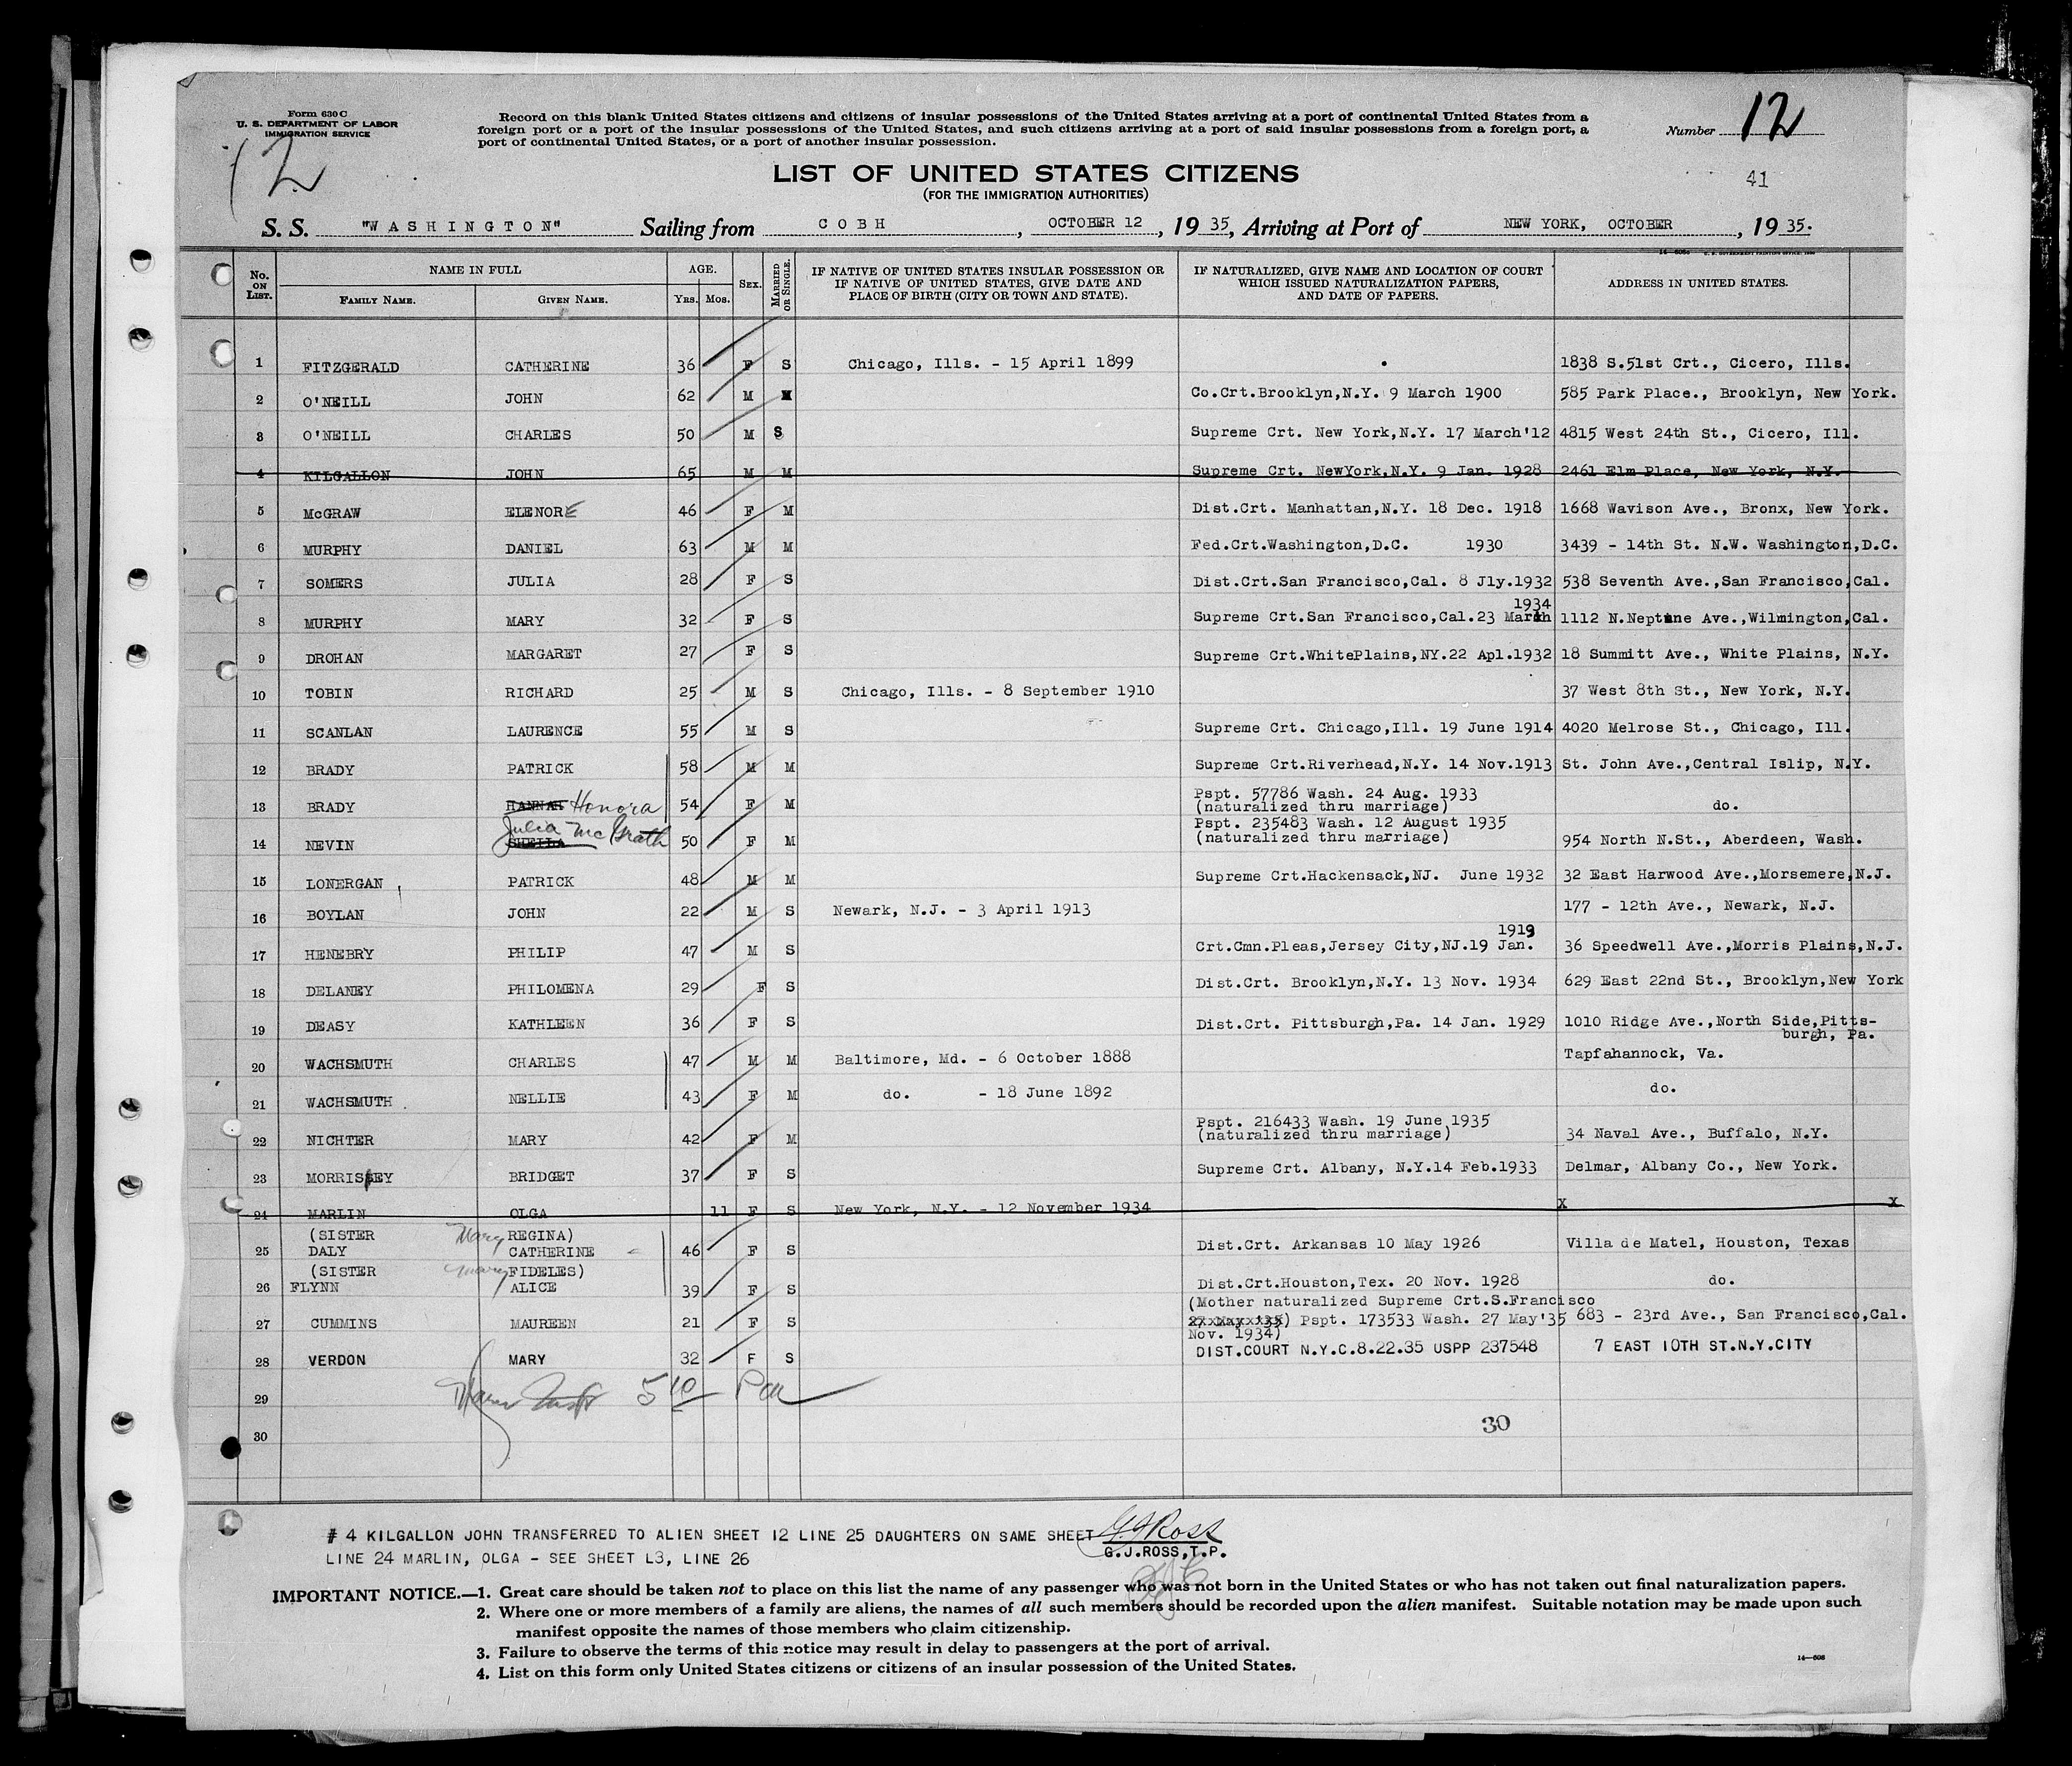 Form 630 C
U. S. DEPARTMENT OF LABOR
IMMIGRATION SERVICE
12
Record on this blank United States citizens and citizens of insular possessions of the United States arriving at a port of continental United States from a
foreign port or a port of the insular possessions of the United States, and such citizens arriving at a port of said insular possessions from a foreign port, a
port of continental United States, or a port of another insular possession.
Number 12
41
LIST OF UNITED STATES CITIZENS
(FOR THE IMMIGRATION AUTHORITIES)
S. S. "WASHINGTON" Sailing from COBH, OCTOBER 12, 1935, Arriving at Port of NEW YORK, OCTOBER, 1935.
No. ON LIST. NAME IN FULL FAMILY NAME. GIVEN NAME. AGE. YRS. MOS. SEX. MARRIED OR SINGLE. IF NATIVE OF UNITED STATES INSULAR POSSESSION OR IF NATIVE OF UNITED STATES, GIVE DATE AND PLACE OF BIRTH (CITY OR TOWN AND STATE). IF NATURALIZED, GIVE NAME AND LOCATION OF COURT WHICH ISSUED NATURALIZATION PAPERS, AND DATE OF PAPERS. ADDRESS IN UNITED STATES.
1 FITZGERALD CATHERINE 36 F S Chicago, Ills. - 15 April 1899 1838 S.51st Crt., Cicero, Ills.
2 O'NEILL JOHN 62 M M Co.Crt.Brooklyn,N.Y. 9 March 1900 585 Park Place., Brooklyn, New York.
3 O'NEILL CHARLES 50 M S Supreme Crt. New York,N.Y. 17 March'12 4815 West 24th St., Cicero, Ill.
4 KILGALLON JOHN 65 M M Supreme Crt. NewYork,N.Y. 9 Jan. 1928 2461 Elm Place, New York, N.Y.
5 McGRAW ELENORE 46 F M Dist.Crt. Manhattan,N.Y. 18 Dec. 1918 1668 Wavison Ave., Bronx, New York.
6 MURPHY DANIEL 63 M M Fed.Crt.Washington,D.C. 1930 3439 - 14th St. N.W. Washington,D.C.
7 SOMERS JULIA 28 F S Dist.Crt.San Francisco,Cal. 8 Jly.1932 538 Seventh Ave.,San Francisco,Cal.
8 MURPHY MARY 32 F S Supreme Crt.San Francisco,Cal.23 March 1934 1112 N.Neptune Ave.,Wilmington,Cal.
9 DROHAN MARGARET 27 F S Supreme Crt.WhitePlains,NY.22 Apl.1932 18 Summitt Ave., White Plains, N.Y.
10 TOBIN RICHARD 25 M S Chicago, Ills. - 8 September 1910 37 West 8th St., New York, N.Y.
11 SCANLAN LAURENCE 55 M S Supreme Crt. Chicago,Ill. 19 June 1914 4020 Melrose St., Chicago, Ill.
12 BRADY PATRICK 58 M M Supreme Crt.Riverhead,N.Y. 14 Nov.1913 St. John Ave.,Central Islip, N.Y.
13 BRADY HANNAH Honora 54 F M Pspt. 57786 Wash. 24 Aug. 1933 (naturalized thru marriage) do.
14 NEVIN SHEILA Julia McGrath 50 F M Pspt. 235483 Wash. 12 August 1935 (naturalized thru marriage) 954 North N.St., Aberdeen, Wash.
15 LONERGAN PATRICK 48 M M Supreme Crt.Hackensack,NJ. June 1932 32 East Harwood Ave.,Morsemere,N.J.
16 BOYLAN JOHN 22 M S Newark, N.J. - 3 April 1913 177 - 12th Ave., Newark, N.J.
17 HENEBRY PHILIP 47 M S Crt.Cmn.Pleas,Jersey City,NJ.19 Jan. 1919 36 Speedwell Ave.,Morris Plains,N.J.
18 DELANEY PHILOMENA 29 F S Dist.Crt. Brooklyn,N.Y. 13 Nov. 1934 629 East 22nd St., Brooklyn,New York
19 DEASY KATHLEEN 36 F S Dist.Crt. Pittsburgh,Pa. 14 Jan. 1929 1010 Ridge Ave.,North Side,Pitts-
burgh, Pa.
20 WACHSMUTH CHARLES 47 M M Baltimore, Md. - 6 October 1888 Tapfahannock, Va.
21 WACHSMUTH NELLIE 43 F M do. - 18 June 1892 do.
22 NICHTER MARY 42 F M Pspt. 216433 Wash. 19 June 1935 (naturalized thru marriage) 34 Naval Ave., Buffalo, N.Y.
23 MORRISEY BRIDGET 37 F S Supreme Crt. Albany, N.Y.14 Feb.1933 Delmar, Albany Co., New York.
24 MARLIN OLGA 11 F S New York, N.Y. - 12 November 1934 X X
(SISTER Mary REGINA)
25 DALY CATHERINE 46 F S Dist.Crt. Arkansas 10 May 1926 Villa de Matel, Houston, Texas
(SISTER Mary FIDELES)
26 FLYNN ALICE 39 F S Dist.Crt.Houston,Tex. 20 Nov. 1928 do.
(Mother naturalized Supreme Crt.S.Francisco
27 CUMMINS MAUREEN 21 F S 27 May '35) Pspt. 173533 Wash. 27 May'35 683 - 23rd Ave., San Francisco,Cal.
Nov. 1934)
28 VERDON MARY 32 F S DIST.COURT N.Y.C.8.22.35 USPP 237548 7 EAST 10TH ST.N.Y.CITY
29
30
30
# 4 KILGALLON JOHN TRANSFERRED TO ALIEN SHEET 12 LINE 25 DAUGHTERS ON SAME SHEET G J Ross
LINE 24 MARLIN, OLGA - SEE SHEET L3, LINE 26 G.J.ROSS,T.P.
IMPORTANT NOTICE.—1. Great care should be taken not to place on this list the name of any passenger who was not born in the United States or who has not taken out final naturalization papers.
2. Where one or more members of a family are aliens, the names of all such members should be recorded upon the alien manifest. Suitable notation may be made upon such
manifest opposite the names of those members who claim citizenship.
3. Failure to observe the terms of this notice may result in delay to passengers at the port of arrival.
4. List on this form only United States citizens or citizens of an insular possession of the United States.